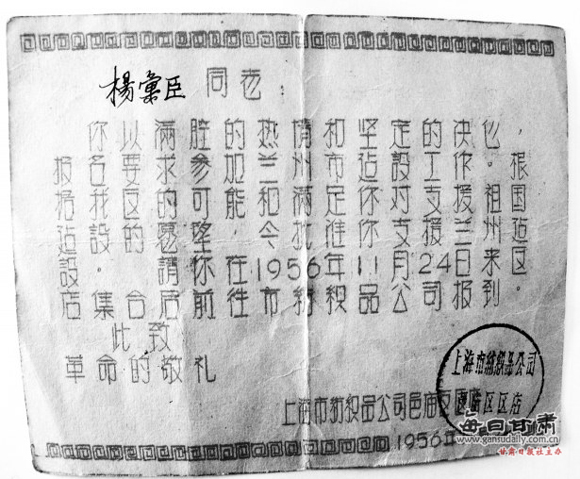 楊彙臣 同志：
你以滿腔的热情和坚定的决心，
报名要求参加兰州市建設工作。根
据我区的可能和滿足你对支援祖国
建設的愿望，今批准你支援兰州建
設。請你在1956年11月24日来区
店集合后前往市紡织品公司报到。
此致
革命的敬礼
上海市紡织品公司邑庙区区店
1956
上海市紡织品公司
每日甘肃
www.gansudaily.com.cn
甘肃日报社主办